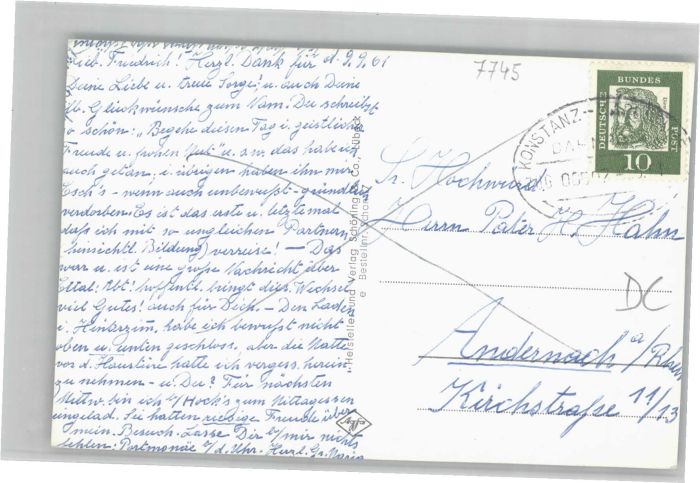 Lieb. Friedrich! Herzl. Dank für d. 9.9.61
Deine Liebe u. treue Sorge! u. auch Deine
lb. Glückwünsche zum Nam. Du schreibst
so schön: „Begehe diesen Tag i. geistlicher
Freude u. frohen Mut“ u. das habe ich
auch getan, u. übrigen haben ihn mir
Esch's - wenn auch unbewußt - gründlich
verdorben. Es ist das erste u. letzte mal
daß ich mit so ungleichen Partnern
(hinsichtl. Bildung) verreise! - Das
war u. ist eine große Nachricht über
Ettal: Abt! hoffentl. bringt dies. Wechsel
viel Gutes! auch für Dich. - Den Laden
i. Hinterzim. habe ich bewußt nicht
oben u. unten geschloss. aber die Matte
vor d. Haustüre hatte ich vergess. herein
zu nehmen - u. Du? Für nächsten
Mittw. bin ich b/Hock's zum Mittagessen
eingelad. Sie hatten riesige Freude über
mein. Besuch. Lasse Dir b/mir nichts
fehlen: Portmonäe m/d. Uhr. Herzl. Gr.
Hersteller und Verlag Schöning & Co., Lübeck
Agfa
7745
DEUTSCHE BUNDES POST
10
KONSTANZ
Sr. Hochwürd
Herrn Pater H. Hahn
DC
Andernach a/Rhein
Kirchstraße 11/13